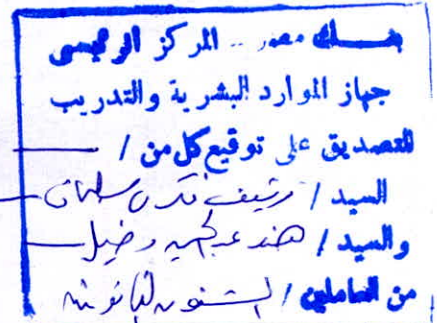 بنك مصر .. المركز الرئيسى
جهاز الموارد البشرية والتدريب
للتصديق على توقيع كل من /
السيد /
والسيد / هند عبد
من العاملين / الشئون القانونية